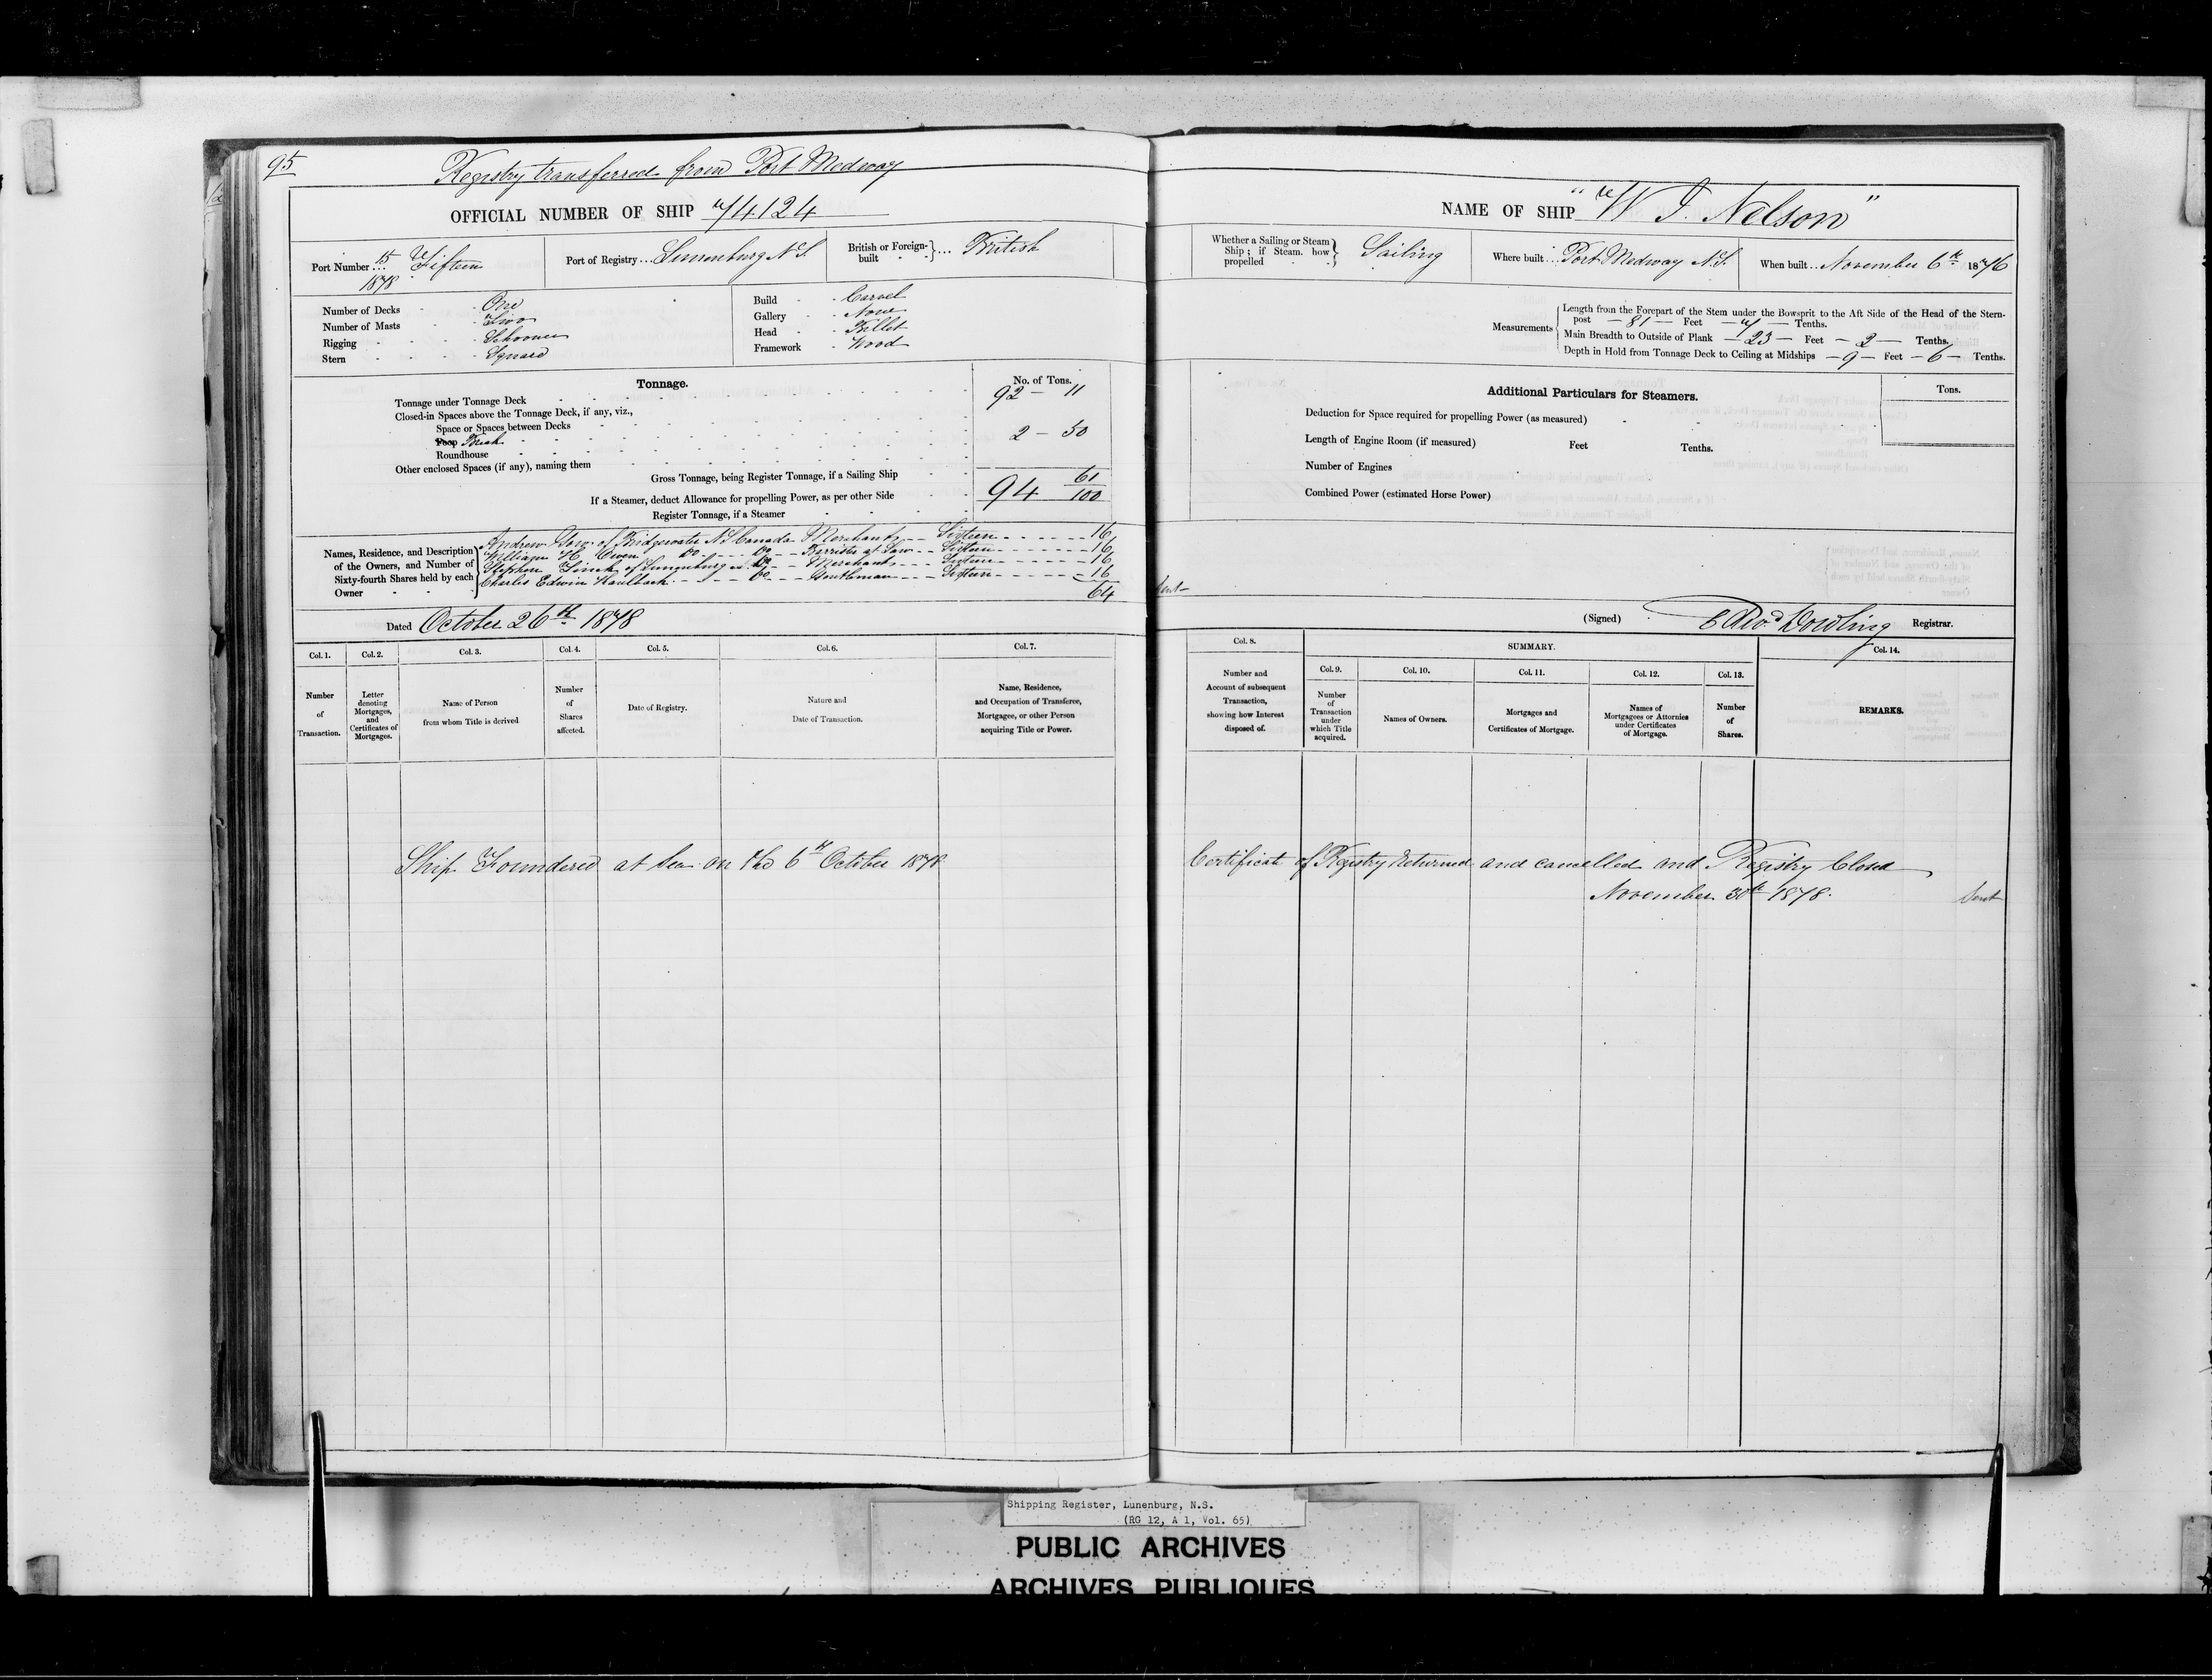 95
Registry transferred from Port Medway
OFFICIAL NUMBER OF SHIP 74124
Port Number 15 Fifteen
1878
Port of Registry ... Lunenburg N.S.
British or Foreign-built ... British
Number of Decks - One
Number of Masts - Two
Rigging - Schooner
Stern - Square
Build - Carvel
Gallery - None
Head - Billet
Framework - Wood
Tonnage. No. of Tons.
Tonnage under Tonnage Deck 92 - 11
Closed-in Spaces above the Tonnage Deck, if any, viz.,
Space or Spaces between Decks
Poop Break 2 - 50
Roundhouse
Other enclosed Spaces (if any), naming them
Gross Tonnage, being Register Tonnage, if a Sailing Ship 94 61/100
If a Steamer, deduct Allowance for propelling Power, as per other Side
Register Tonnage, if a Steamer
Names, Residence, and Description of the Owners, and Number of Sixty-fourth Shares held by each Owner
Andrew Gow of Bridgewater N S Canada Merchant -- Sixteen ------ 16
William H. Owen Do --- Do -- Barrister at Law -- Sixteen ------ 16
Stephen Finck of Lunenburg Do -- Merchant --- Sixteen ------ 16
Charles Edwin Kaulback --- Do --- Gentleman --- Sixteen ------ 16
64
Dated October 26th 1878
Col. 1. Col. 2. Col. 3. Col. 4. Col. 5. Col. 6. Col. 7.
Number of Transaction.
Letter denoting Mortgages, and Certificates of Mortgages.
Name of Person from whom Title is derived
Number of Shares affected.
Date of Registry.
Nature and Date of Transaction.
Name, Residence, and Occupation of Transferee, Mortgagee, or other Person acquiring Title or Power.
Ship Foundered at Sea on the 6th October 1878
NAME OF SHIP "W I. Nelson"
Whether a Sailing or Steam Ship; if Steam. how propelled Sailing
Where built ... Port Medway N.S.
When built ... November 6th 1876
Measurements
Length from the Forepart of the Stem under the Bowsprit to the Aft Side of the Head of the Stern-
post — 81 — Feet — 7 — Tenths.
Main Breadth to Outside of Plank — 23 — Feet — 2 — Tenths.
Depth in Hold from Tonnage Deck to Ceiling at Midships — 9 — Feet — 6 — Tenths.
Additional Particulars for Steamers. Tons.
Deduction for Space required for propelling Power (as measured)
Length of Engine Room (if measured) Feet Tenths.
Number of Engines
Combined Power (estimated Horse Power)
Sent
(Signed) Edwd Dowling Registrar.
Col. 8. SUMMARY. Col. 14.
Col. 9. Col. 10. Col. 11. Col. 12. Col. 13.
Number and Account of subsequent Transaction, showing how Interest disposed of.
Number of Transaction under which Title acquired.
Names of Owners.
Mortgages and Certificates of Mortgage.
Names of Mortgagees or Attornies under Certificates of Mortgage.
Number of Shares.
REMARKS.
Certificate of Registry Returned and cancelled and Registry Closed
November 30th 1878. Sent
Shipping Register, Lunenburg, N.S.
(RG 12, A 1, Vol. 65)
PUBLIC ARCHIVES
ARCHIVES PUBLIQUES